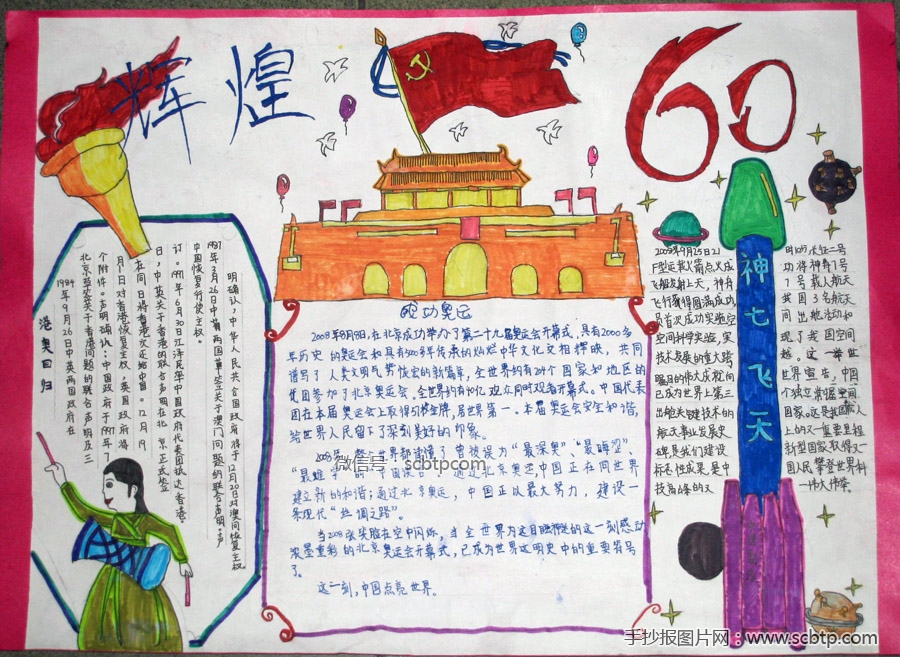 辉煌
60
港澳回归
1984年9月26日中英两国政府在
北京草签关于香港问题的联合声明及三
个附件。声明确认:中国政府于1997年7
月1日对香港恢复主权,英国政府将
在同日将香港交还给中国。12月19
日,中英关于香港的联合声明在北京正式签
订。1997年6月30日江泽民率中国政府代表团抵达香港
中国恢复行使主权。
1987年3月26日中葡两国草签关于澳门问题的联合声明。声
明确认,中华人民共合国政府将于12月20日对澳门恢复主权
成功奥运
2008年8月8日,在北京成功举办了第二十九届奥运会开幕式,具有2000多
年历史的奥运会和具有5000年传承的灿烂中华文化交相辉映,共同
谱写了人类文明气势恢宏的新篇章,全世界约有204个国家和地区的
代团参加了北京奥运会。全世界约有40亿观众同时观看开幕式。中国代表
团在本届奥运会上取得51枚金牌,居世界第一。本届奥运会安全和谐,
给世界人民留下了深刻美好的印象。
2008奥,整个世界都读懂了曾被误为“最深奥”、“最晦涩”、
“最难 的“中国 通过北京奥运中国正在同世界
建立新的和谐;通过北京奥运,中国正以最大努力,建设一
条现代“丝绸之路”。
当2008张笑脸在空中闪烁,当全世界为这目 的这一刻感动
浓墨重彩的北京奥运会开幕式,已成为世界文明史中的重要符号
了。
这一刻,中国点亮世界。
神七飞天
2008年9月25日21
F型运载火箭点火成
飞船发射上天,神舟
飞行获得圆满成功
员首次成功实施空
空间科学实验,实
技术发展的重大跨
瞩目的伟大成就,向
已成为世界上第三
出舱关键技术的
航天事业发展史
碑,是我们建设
标志性成果,是中
技高峰的又
时10分长征二号
功将神舟7号
7号载人航天
我国3名航天
间出舱活动和
现了我国空间
越。这一举世
世界宣告,中国
个独立掌握空间
国家。这是我国载人
上的又一重要里程
新型国家取得又一
国人民攀登世界科
一伟大伟举。
微信号:scbtpcom
手抄报图片网:www.scbtp.com